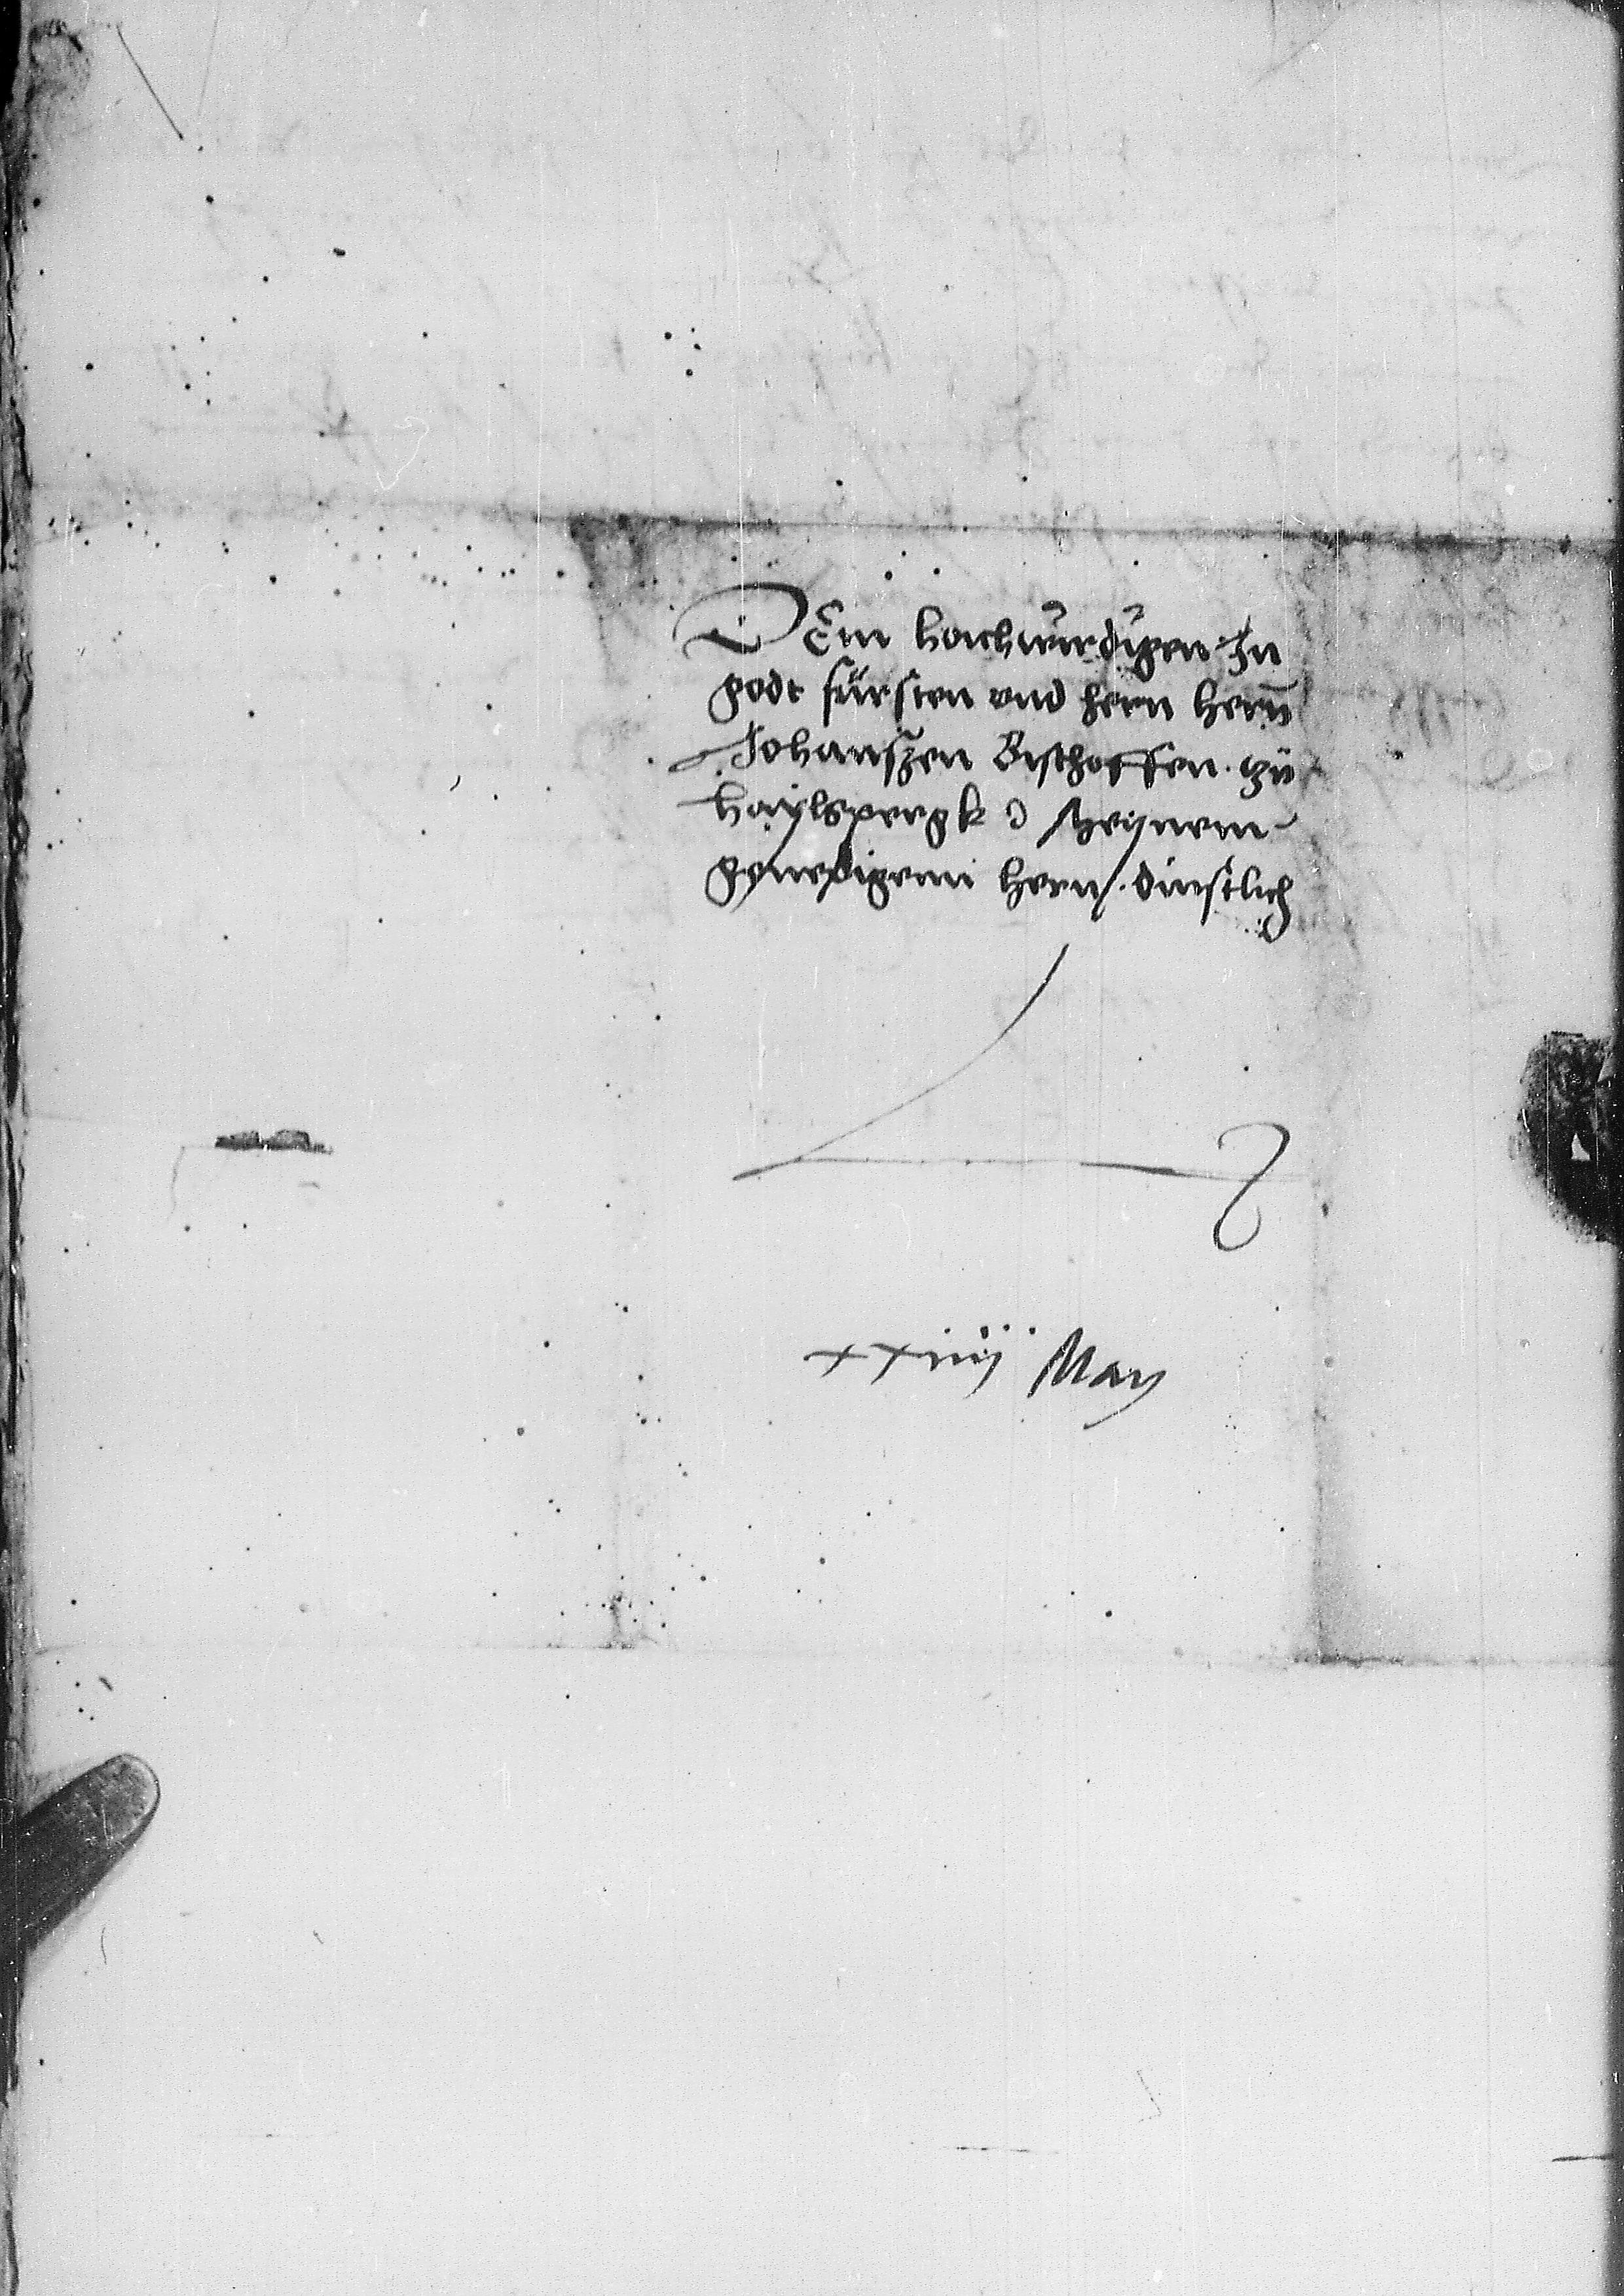 DEm hochwurdigen In
godt fürsten vnd hern hern
Johanszen Bischoffen zü
haÿlspergk Meÿnem
genedigenn hern dinstlich
xxiiij May